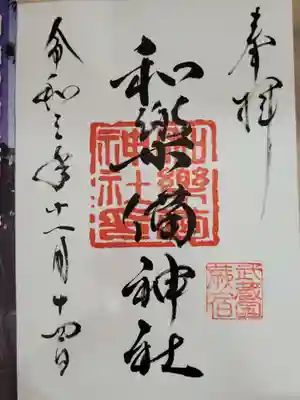 奉拝
和樂備神社
和樂備神社印
武蔵国
蕨宿
令和三年十一月十四日